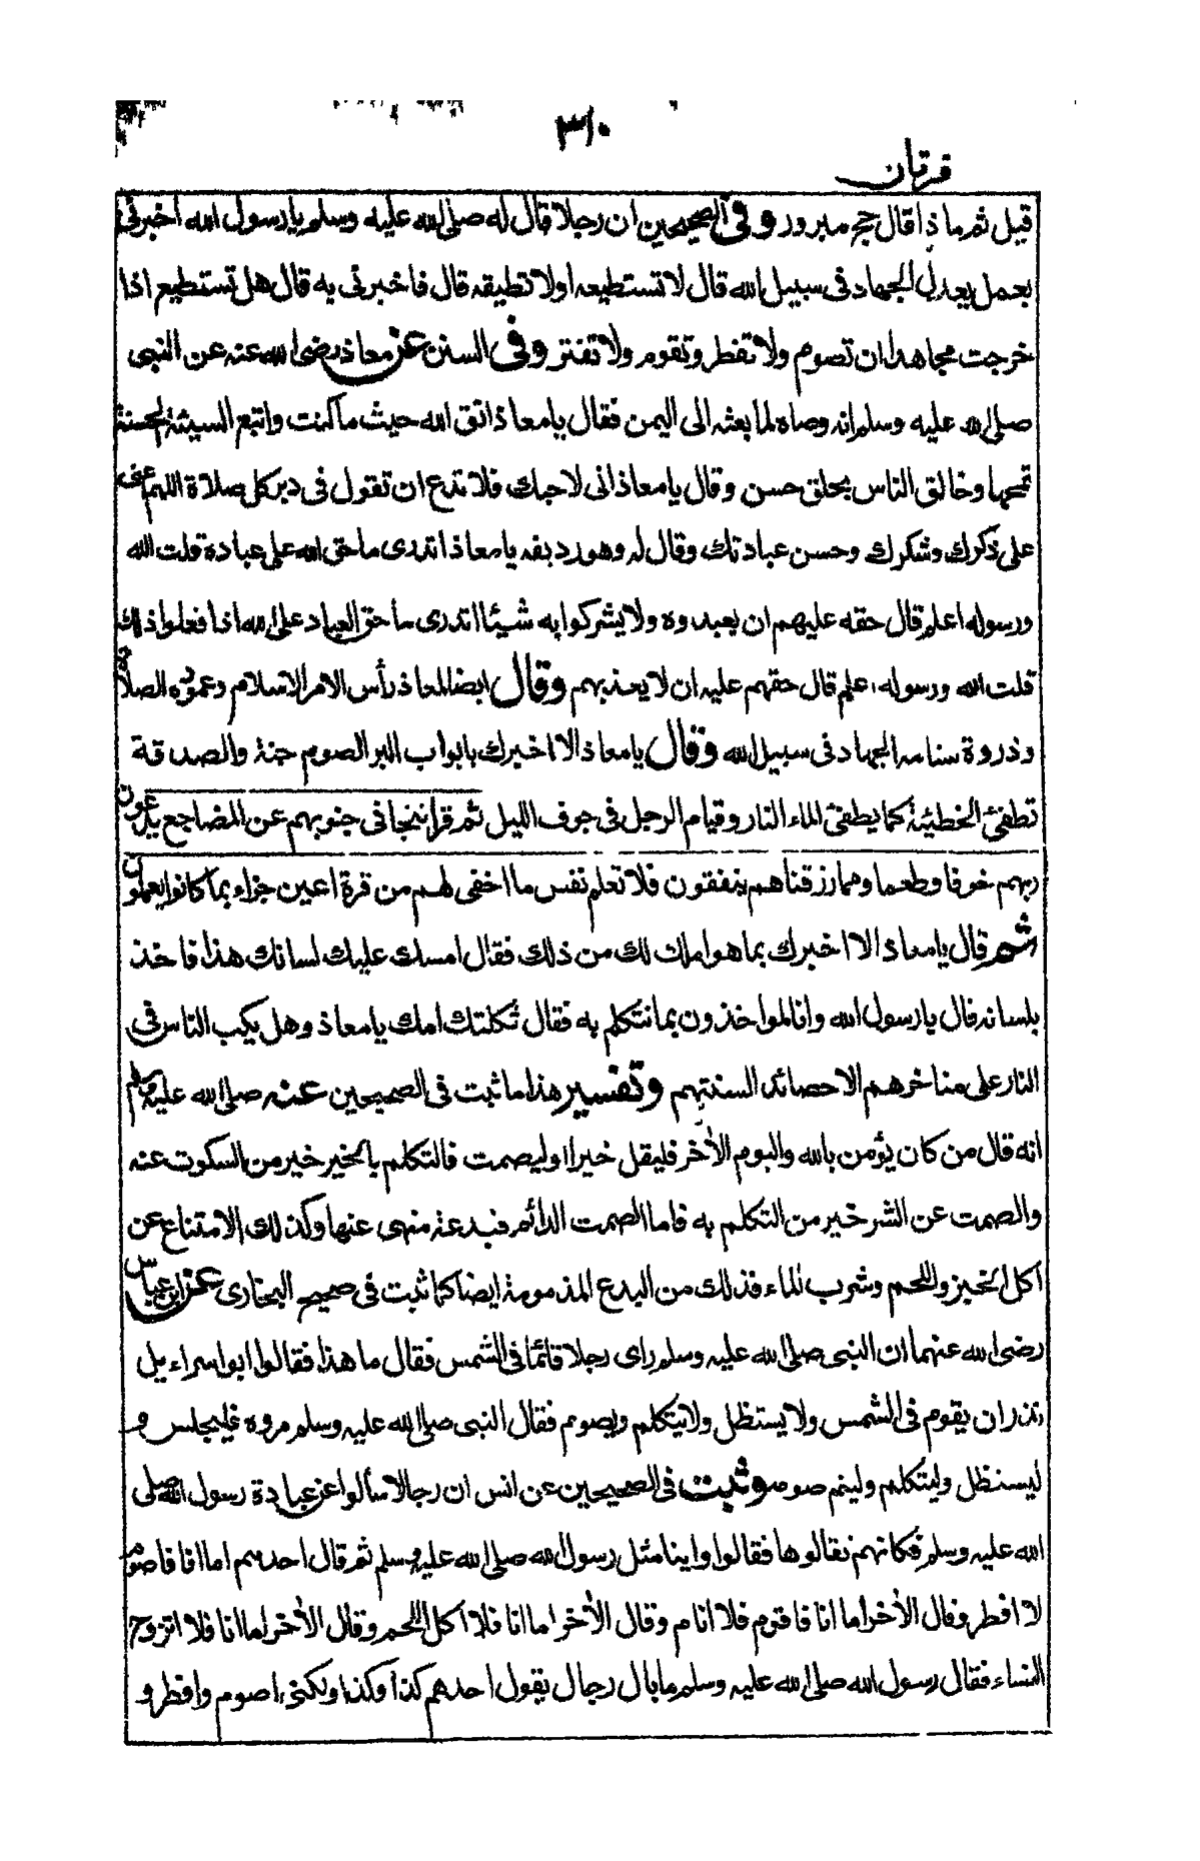 ٣١٠
فرقان
قيل ثم ما ذا قال حج مبرور وفى الصحيحين ان رجلا قال له صلى الله عليه وسلم يا رسول الله اخبرنى
بعمل يعدل الجهاد فى سبيل الله قال لا تستطيعه او لا تطيقه قال فاخبرنى به قال هل تستطيع اذا
خرجت مجاهدا ان تصوم ولا تفطر وتقوم ولا تفتر وفى السنن عن معاذ رضى الله عنه عن النبى
صلى الله عليه وسلم انه وصاه لما بعثه الى اليمن فقال يا معاذ اتق الله حيث ما كنت واتبع السيئة الحسنة
تمحها وخالق الناس بخلق حسن وقال يا معاذ انى لاحبك فلا تدع ان تقول فى دبر كل صلاة اللهم اعنى
على ذكرك وشكرك وحسن عبادتك وقال له وهو رديفه يا معاذ اتدرى ما حق الله على عباده قلت الله
ورسوله اعلم قال حقه عليهم ان يعبدوه ولا يشركوا به شيئا اتدرى ما حق العباد على الله اذا فعلوا ذلك
قلت الله ورسوله اعلم قال حقهم عليه ان لا يعذبهم وقال ايضا لمعاذ رأس الامر الاسلام وعموده الصلاة
وذروة سنامه الجهاد فى سبيل الله وقال يا معاذ الا اخبرك بابواب البر الصوم جنة والصدقة
تطفئ الخطيئة كما يطفئ الماء النار وقيام الرجل فى جوف الليل ثم قرا تتجافى جنوبهم عن المضاجع يدعون
ربهم خوفا وطمعا ومما رزقناهم ينفقون فلا تعلم نفس ما اخفى لهم من قرة اعين جزاء بما كانوا يعملون
ثم قال يا معاذ الا اخبرك بما هو املك لك من ذلك فقال امسك عليك لسانك هذا فاخذ
بلسانه قال يا رسول الله وانا لمواخذون بما نتكلم به فقال ثكلتك امك يا معاذ وهل يكب الناس فى
النار على مناخرهم الا حصائد السنتهم وتفسير هذا ما ثبت فى الصحيحين عنه صلى الله عليه وسلم
انه قال من كان يؤمن بالله واليوم الأخر فليقل خيرا او ليصمت فالتكلم بالخير خير من السكوت عنه
والصمت عن الشر خير من التكلم به فاما الصمت الدائم فبدعة منهى عنها وكذلك الامتناع عن
اكل الخبز واللحم وشرب الماء فذلك من البدع المذمومة ايضا كما ثبت فى صحيح البخارى عن ابن عباس
رضى الله عنهما ان النبى صلى الله عليه وسلم راى رجلا قائما فى الشمس فقال ما هذا فقالوا ابو اسراءيل
نذر ان يقوم فى الشمس ولا يستظل ولا يتكلم ويصوم فقال النبى صلى الله عليه وسلم مروه فليجلس و
ليستظل وليتكلم وليتم صومه وثبت فى الصحيحين عن انس ان رجالا سألوا عن عبادة رسول الله صلى
الله عليه وسلم فكانهم تقالوها فقالوا واينا مثل رسول الله صلى الله عليه وسلم ثم قال احدهم اما انا فاصوم
لا افطر وقال الأخر اما انا فاقوم فلا انام وقال الأخر اما انا فلا اكل اللحم وقال الأخر اما انا فلا اتزوج
النساء فقال رسول الله صلى الله عليه وسلم ما بال رجال يقول احدهم كذا وكذا ولكنى اصوم وافطر و